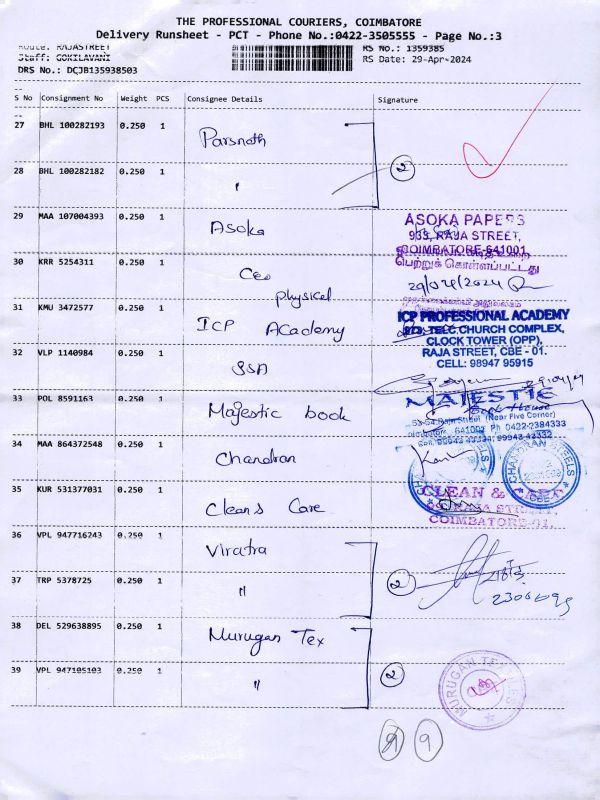 THE PROFESSIONAL COURIERS, COIMBATORE
Delivery Runsheet - PCT - Phone No.:0422-3505555 - Page No.:3
Route: RAJASTREET RS No.: 1359385
Staff: GOKILAVANI RS Date: 29-Apr-2024
DRS No.: DCJB135938503
S No Consignment No Weight PCS Consignee Details Signature
27 BHL 100282193 0.250 1 Parsnath
28 BHL 100282182 0.250 1 " 2
29 MAA 107004393 0.250 1 Asoka
ASOKA PAPERS
933, RAJA STREET,
COIMBATORE-641001
30 KRR 5254311 0.250 1 Ceo physical
பெற்றுக் கொள்ளப்பட்டது
29/04/2024
31 KMU 3472577 0.250 1 ICP Academy
ICP PROFESSIONAL ACADEMY
TELC CHURCH COMPLEX,
CLOCK TOWER (OPP),
RAJA STREET, CBE - 01.
CELL: 98947 95915
32 VLP 1140984 0.250 1 SSA
33 POL 8591163 0.250 1 Majestic book
MAJESTIC
Book House
Raja Street (Near Five Corner)
641001 Ph 0422-2384333
34 MAA 864372548 0.250 1 Chandran
CHANDRAN STEELS
35 KUR 531377031 0.250 1 Clean & Care
CLEAN & CARE
RAJA STREET,
COIMBATORE-01.
36 VPL 947716243 0.250 1 Viratra
37 TRP 5378725 0.250 1 " 2
38 DEL 529638895 0.250 1 Murugan Tex
39 VPL 947105103 0.250 1 " 2
MURUGAN TEX
9